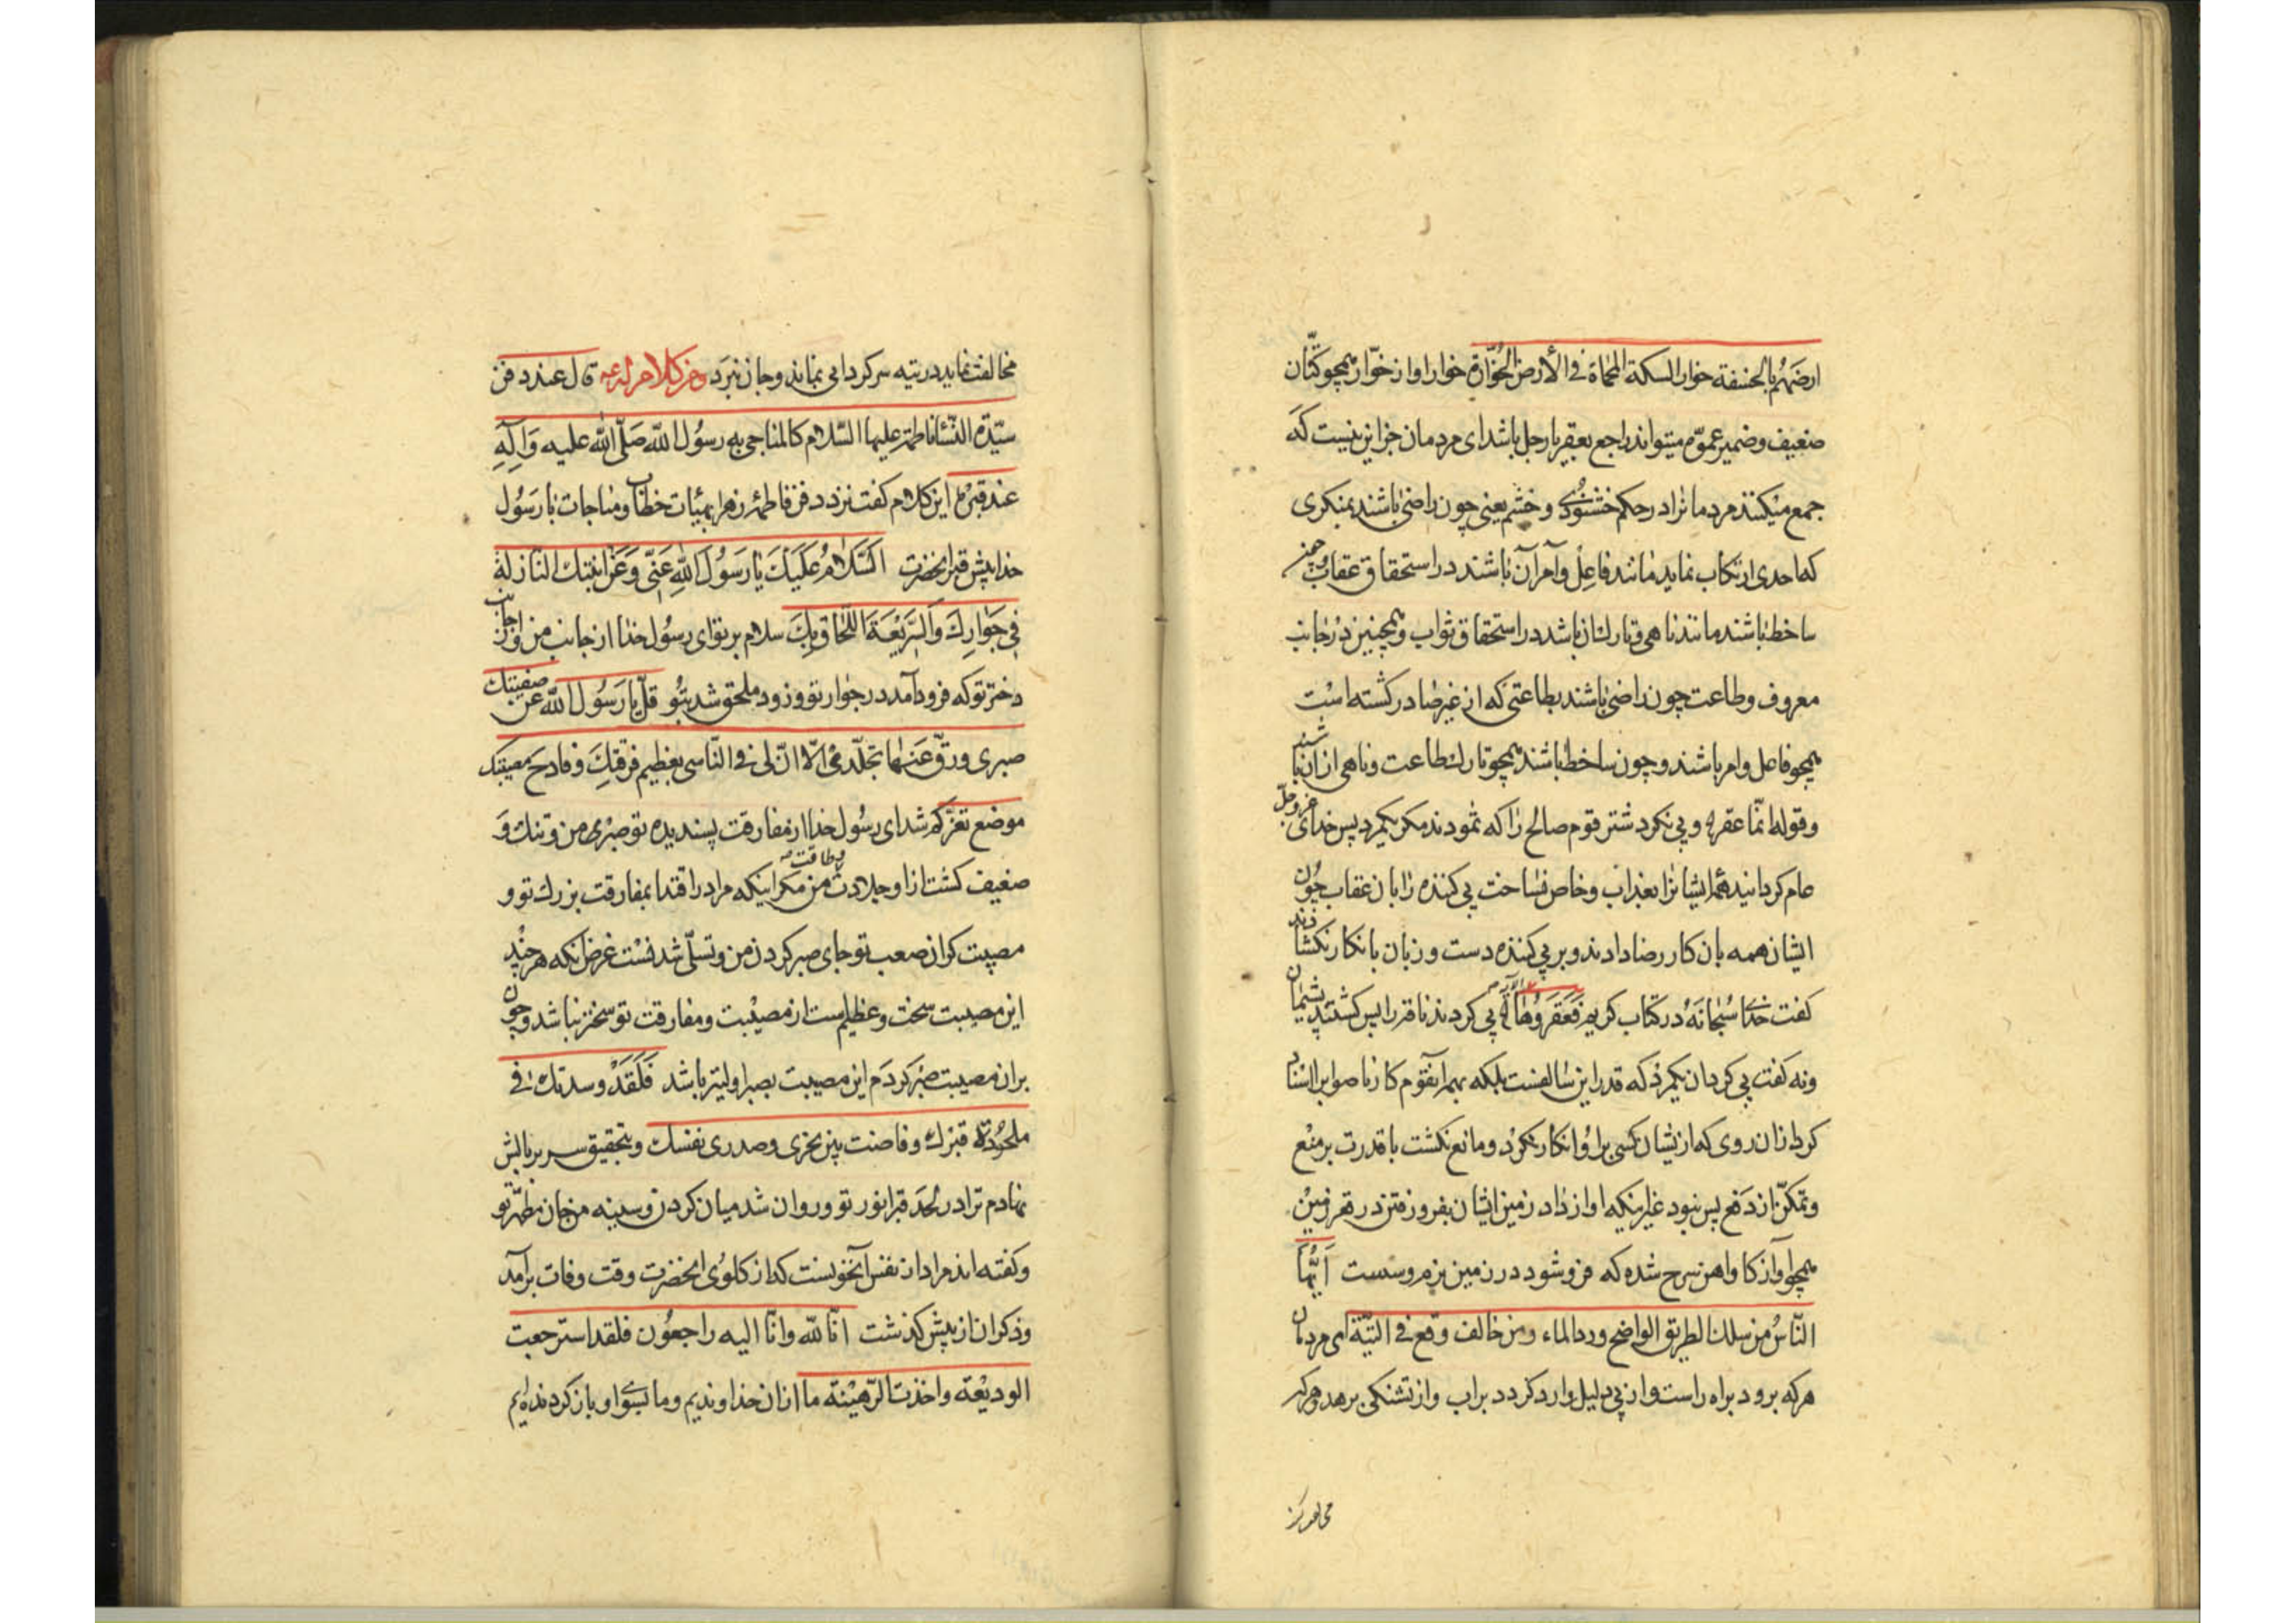 ارضهم بالخسفة خوار السكة المحماة فی الأرض الخوّارة خوار اواز خوّار همچو کتّان
ضعیف و ضمیر عموّه میتواند راجع بعقر یا رجل باشد ای مردمان جز این نیست که
جمع میکند مردمانرا در حکم خشنودی و خشم یعنی چون راضی باشند بمنکری
که احدی ارتکاب نماید مانند فاعل و آمر آن باشند در استحقاق عقاب و چون
ساخط باشند مانند ناهی و تارک ان باشد در استحقاق ثواب و همچنین در جانب
معروف و طاعت چون راضی باشند بطاعتی که از غیر صادر کشته است
همچو فاعل و امر باشند و چون ساخط باشند همچو تارک طاعت و ناهی از ان باشند
و قوله انّما عقر و پی نکرد شتر قوم صالح را که ثمودند مکر یکمرد پس خدای عزوجلّ
عام کردانید همه ایشانرا بعذاب و خاص نساخت پی کننده را بان عقاب چون
ایشان همه بان کار رضا دادند و بر پی کننده دست و زبان بانکار نکشادند
کفت خدا سُبحانَهُ در کتاب کریم فَعَقَرُوهَا الآیه پی کردند ناقه را پس کشتند پشیمان
ونه کفت پی کرد ان یکمرد که قدر این سالفست بلکه بهمه آنقوم کار ناصواب اسناد
کرد از ان روی که از یشان کسی بر او انکار نکرد و مانع نکشت با قدرت بر منع
و تمکّن از دفع پس نبود غیر اینکه اواز داد زمین ایشان بفرو رفتن در قعر زمین
همچو آواز کاو اهن سرح شده که فرو شود در زمین نرم و سست أیُّهَا
النّاسُ من سلك الطریق الواضح ورد الماء ومن خالف وقع فی التیّة ای مردمان
هرکه برود براه راست و از پی دلیل وارد کردد بر اب واز تشنکی برهد و هرکه
مخالفت نماید در تیه سرکردانی بماند و جان نبرد ومن کلام له ع قال عند دفن
سیّدة النّساء فاطمة علیها السّلام کالمناجی به رسُول الله صَلّی الله علیه وَآلِهِ
عند قبره این کلام کفت نزد دفن فاطمه زهرا بهیئات خطاب و مناجات با رَسُول
خدا پیش قبر انحضرت السَّلامُ عَلَیْكَ یا رَسُولَ اللهِ عَنّی وَعَن ابنتك النّازلة
فی جَوارِكَ وَالسَّریعَة اللّحَاق بِكَ سلام بر تو ای رسُول خدا از جانب من و از جانب
دختر تو که فرود آمد در جوار تو و زود ملحق شد بتو قلّ یا رَسُول الله عن صفیتك
صبری ورقّ عَنها تجلّدی الّا انّ لی فی التّاسی بعظیم فرقتِكَ وفادح مصیبتك
موضع تعزّ کم شد ای رسُول خدا از مفارقت پسندیده تو صبر من و تنك و
ضعیف کشت از او جلادت وطاقت من مکر اینکه مرا در اقتدا بمفارقت بزرك تو و
مصیبت کران صعب تو جای صبر کردن من و تسلّی شدنست غرض انکه هر چند
این مصیبت سخت و عظیم است از مصیبت و مفارقت تو سختر نباشد و چون
بران مصیبت صبر کردم این مصیبت بصبر اولیتر باشد فَلَقَدْ وسدتك فی
ملحُودة قبرك وفاضت بین نحری وصدری نفسك و بتحقیق سر بر بالش
نهادم ترا در لحد قبر انور تو و روان شد میان کردن و سینه من جان مطهّر تو
و کفته اند مراد از نفس آنخونست که از کلوی انحضرت وقت وفات برآمد
و ذکر ان از پیش کذشت انّا لله وانّا الیه راجعُون فلقد استرجعت
الودیعة واخذت الرّهینة ما از ان خداوندیم و ما بسوی او باز کردنده ایم